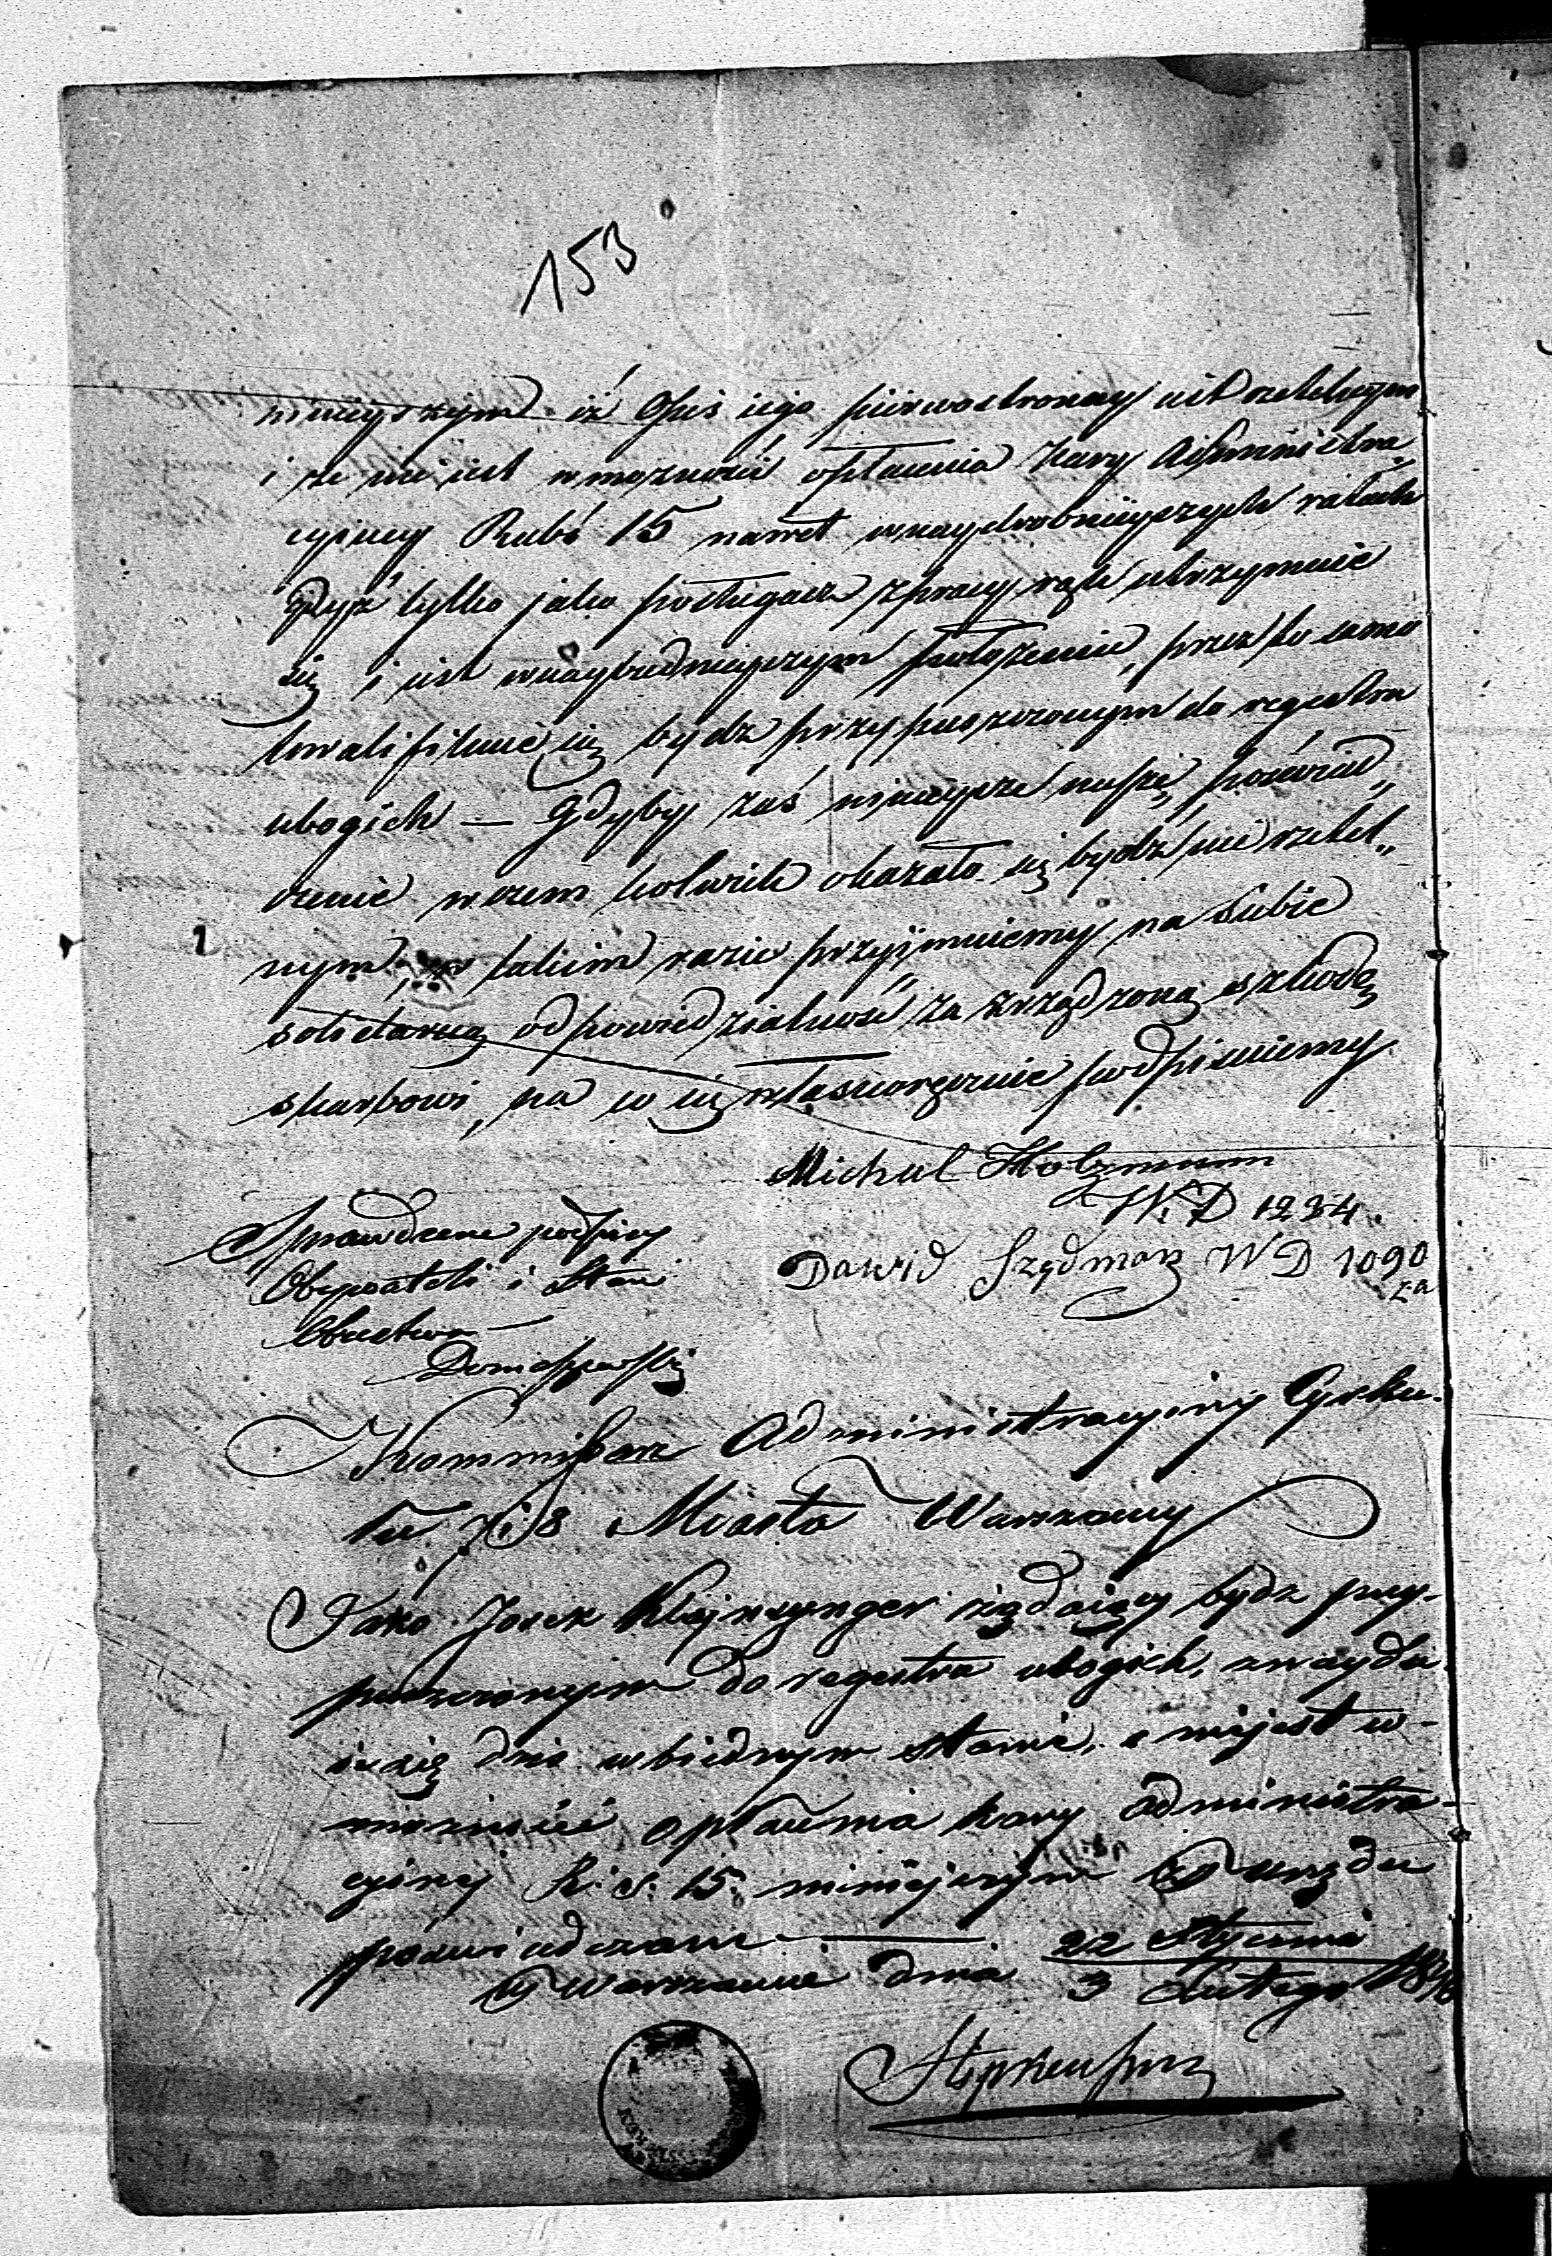 153
ninieyszym iż Opis iego pierwostronny iest rzetelnym
i że nie iest w możności opłacenia Kary Administra„
cyiney Rubś 15 nawet w naydrobnieyszych ratach
gdyż tylko jako posługacz z pracy rąk utrzymuie
się i iest w naybiednieyszym położeniu, przez to samo
kwalifikuie się bydz przypuszczonym do regestra
ubogich — Gdyby zaś ninieysze nasze poświad„
czenie w czem kolwiek okazało się bydz nie rzetel„
nym, w takim razie przyymuiemy na siebie
solidarną odpowiedzialność za zrządzoną szkodę
skarbowi, na co się własnoręcznie podpisuiemy
Michal Holzmann
W: D 1234.
Dawid Szydman W D 1090
za
Sprawdzone podpisy
Obywateli i Stan
Ubóstwa —
Domaszewski
Kommissarz Administracyiny Cyrku-
łu 7 i 8 Miasta Warszawy
Jako Josek Klajnzynger żądaiący bydz przy-
puszczonym do regestra ubogich, znaydu
ie się w biednym stanie, i niejest w-
możności opłacenia kary administra-
cyiney R: s: 15. niniejszym z urzędu
poświadczam —
w Warszawie dnia 22 Stycznia
3 Lutego 1846